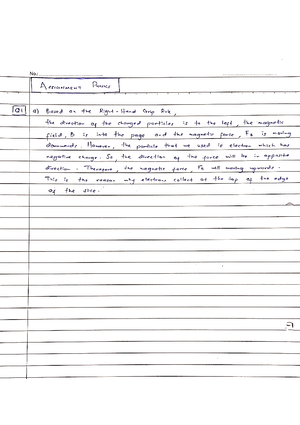 No:
Assignment Physics
Q1 a) Based on the Right-Hand Grip Rule,
the direction of the charged particles is to the left, the magnetic
field, B is into the page and the magnetic force, FB is moving
downwards. However, the particle that we used is electron which has
negative charge. So, the direction of the force will be in opposite
direction. Therefore, the magnetic force, FB will moving upwards.
This is the reason why electrons collect at the top of the edge
of the slice.